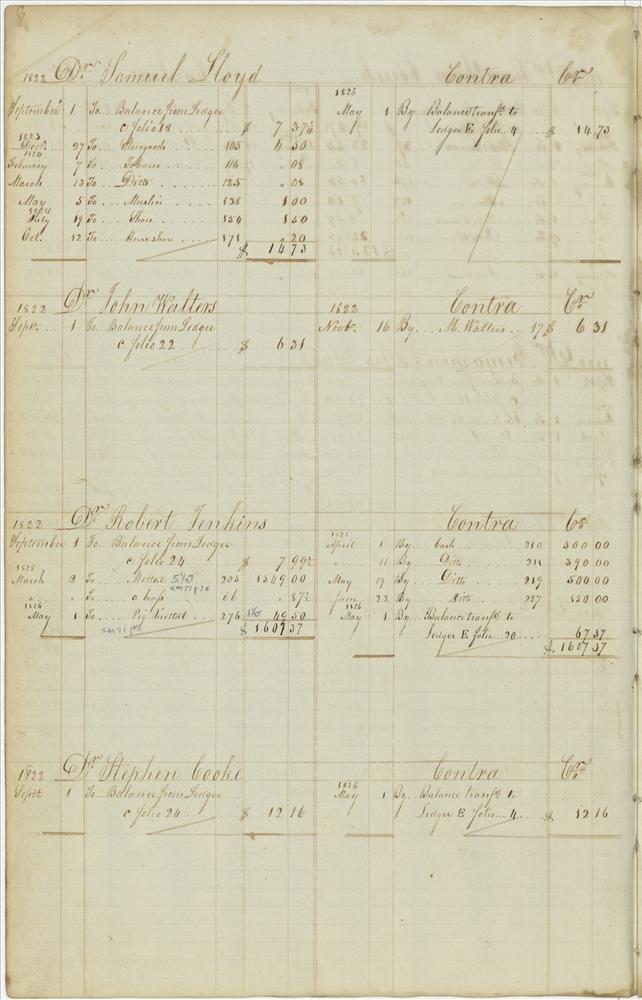 8
1822 Dr. Samuel Lloyd Contra Cr.
September 1 To Balance from Ledger
c folio 18 $ 7 37½
1823
Decr. 27 To 105 4 50
1824
February 7 To Tobacco 116 " 08
March 13 To Ditto 125 " 08
May 5 To Muslin 138 1 00
July 19 To Shoes 154 1 50
Oct. 12 To Horseshoe 171 " 20
$ 14 73
1826
May 1 By Balance transfd. to
Ledger E folio 4 $ 14 73
1822 Dr. John Walters 1822 Contra Cr.
Septr. 1 To Balance from Ledger
c folio 22 $ 6 31
Novbr. 16 By M. Walters 17 $ 6 31
1822 Dr. Robert Jenkins Contra Cr.
September 1 To Balance from Ledger
c folio 24 $ 7 99½
1825
March 8 To Mettal 205 1549 00
" " To a hoop 66 " 87½
1826
May 1 To Pig Mettal 276 49 50
$ 1607 37
1825
April 1 By Cash 210 500 00
" 11 By Ditto 211 390 00
May 19 By Ditto 219 500 00
June 22 By Ditto 227 150 00
1826
May 1 By Balance transfd. to
Ledger E folio 20 67 37
$ 1607 37
1822 Dr. Stephen Cooke Contra Cr.
Septr. 1 To Ballance from Ledger
c folio 24 $ 12 16
1826
May 1 By Balance transfd. to
Ledger E folio 4 $ 12 16